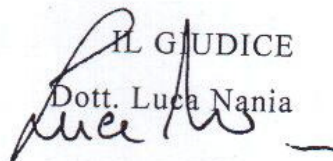 IL GIUDICE
Dott. Luca Nania